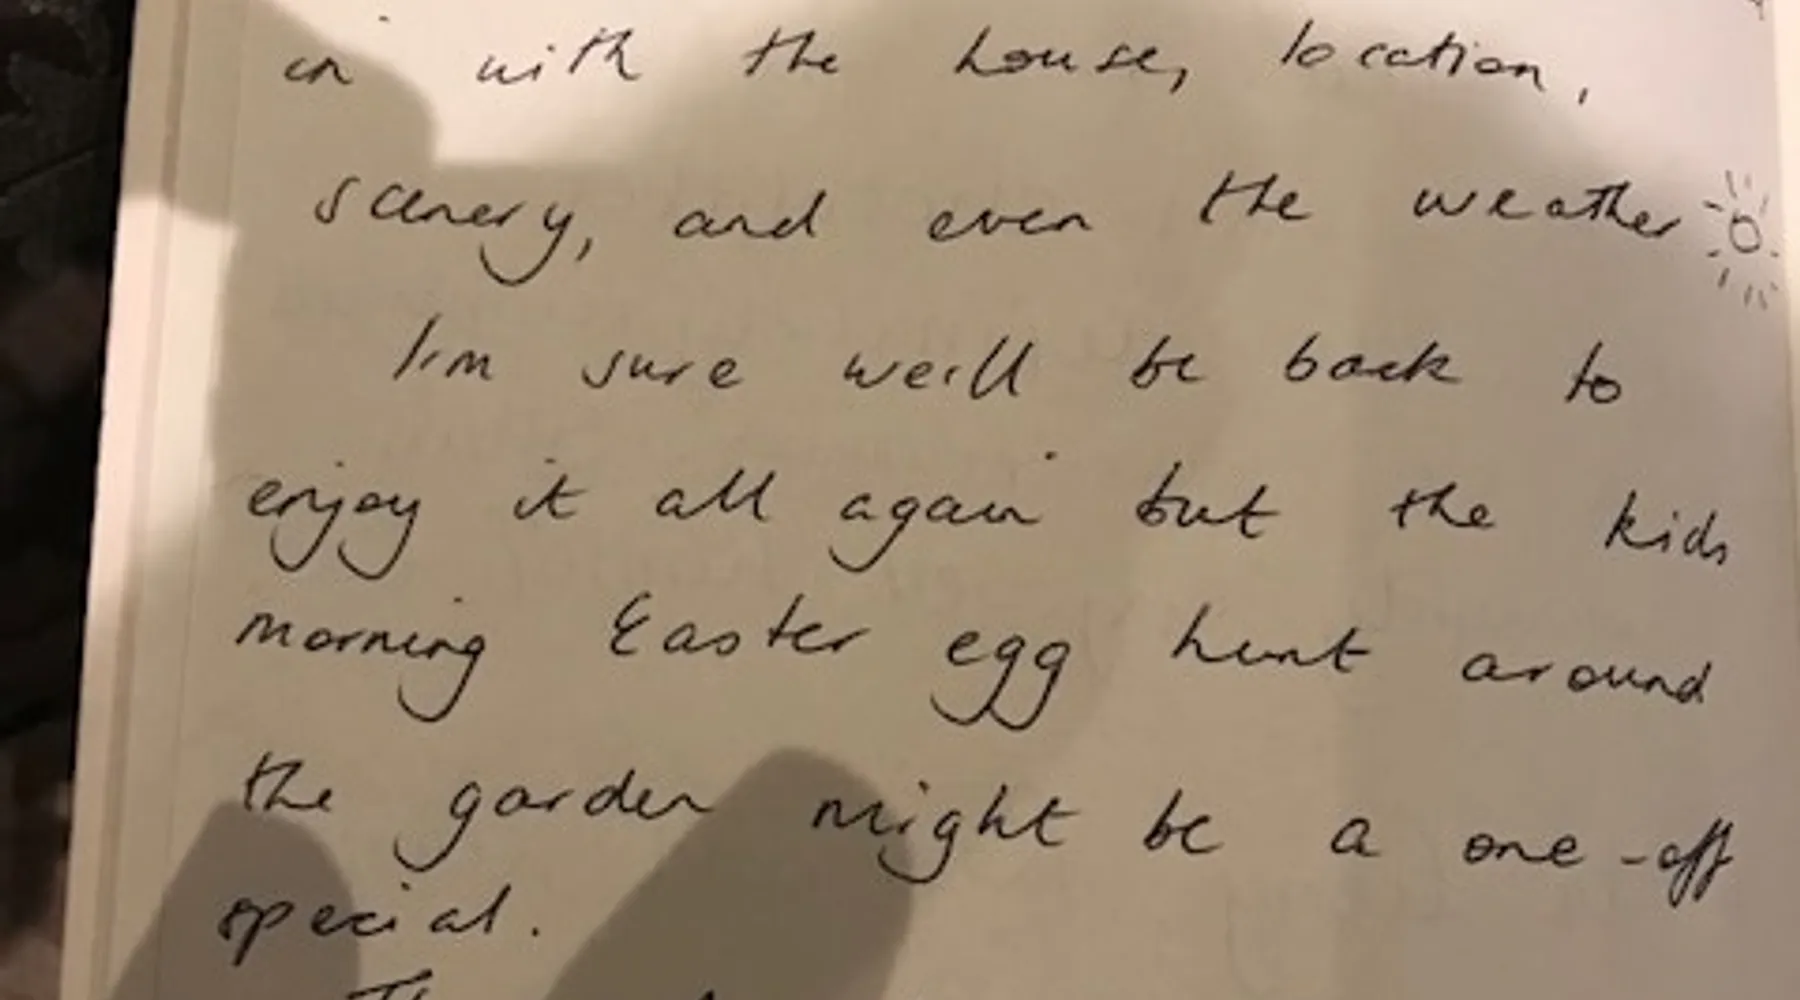 in with the house, location,
scenery, and even the weather
I'm sure we'll be back to
enjoy it all again but the kids
morning Easter egg hunt around
the garden might be a one-off
special.